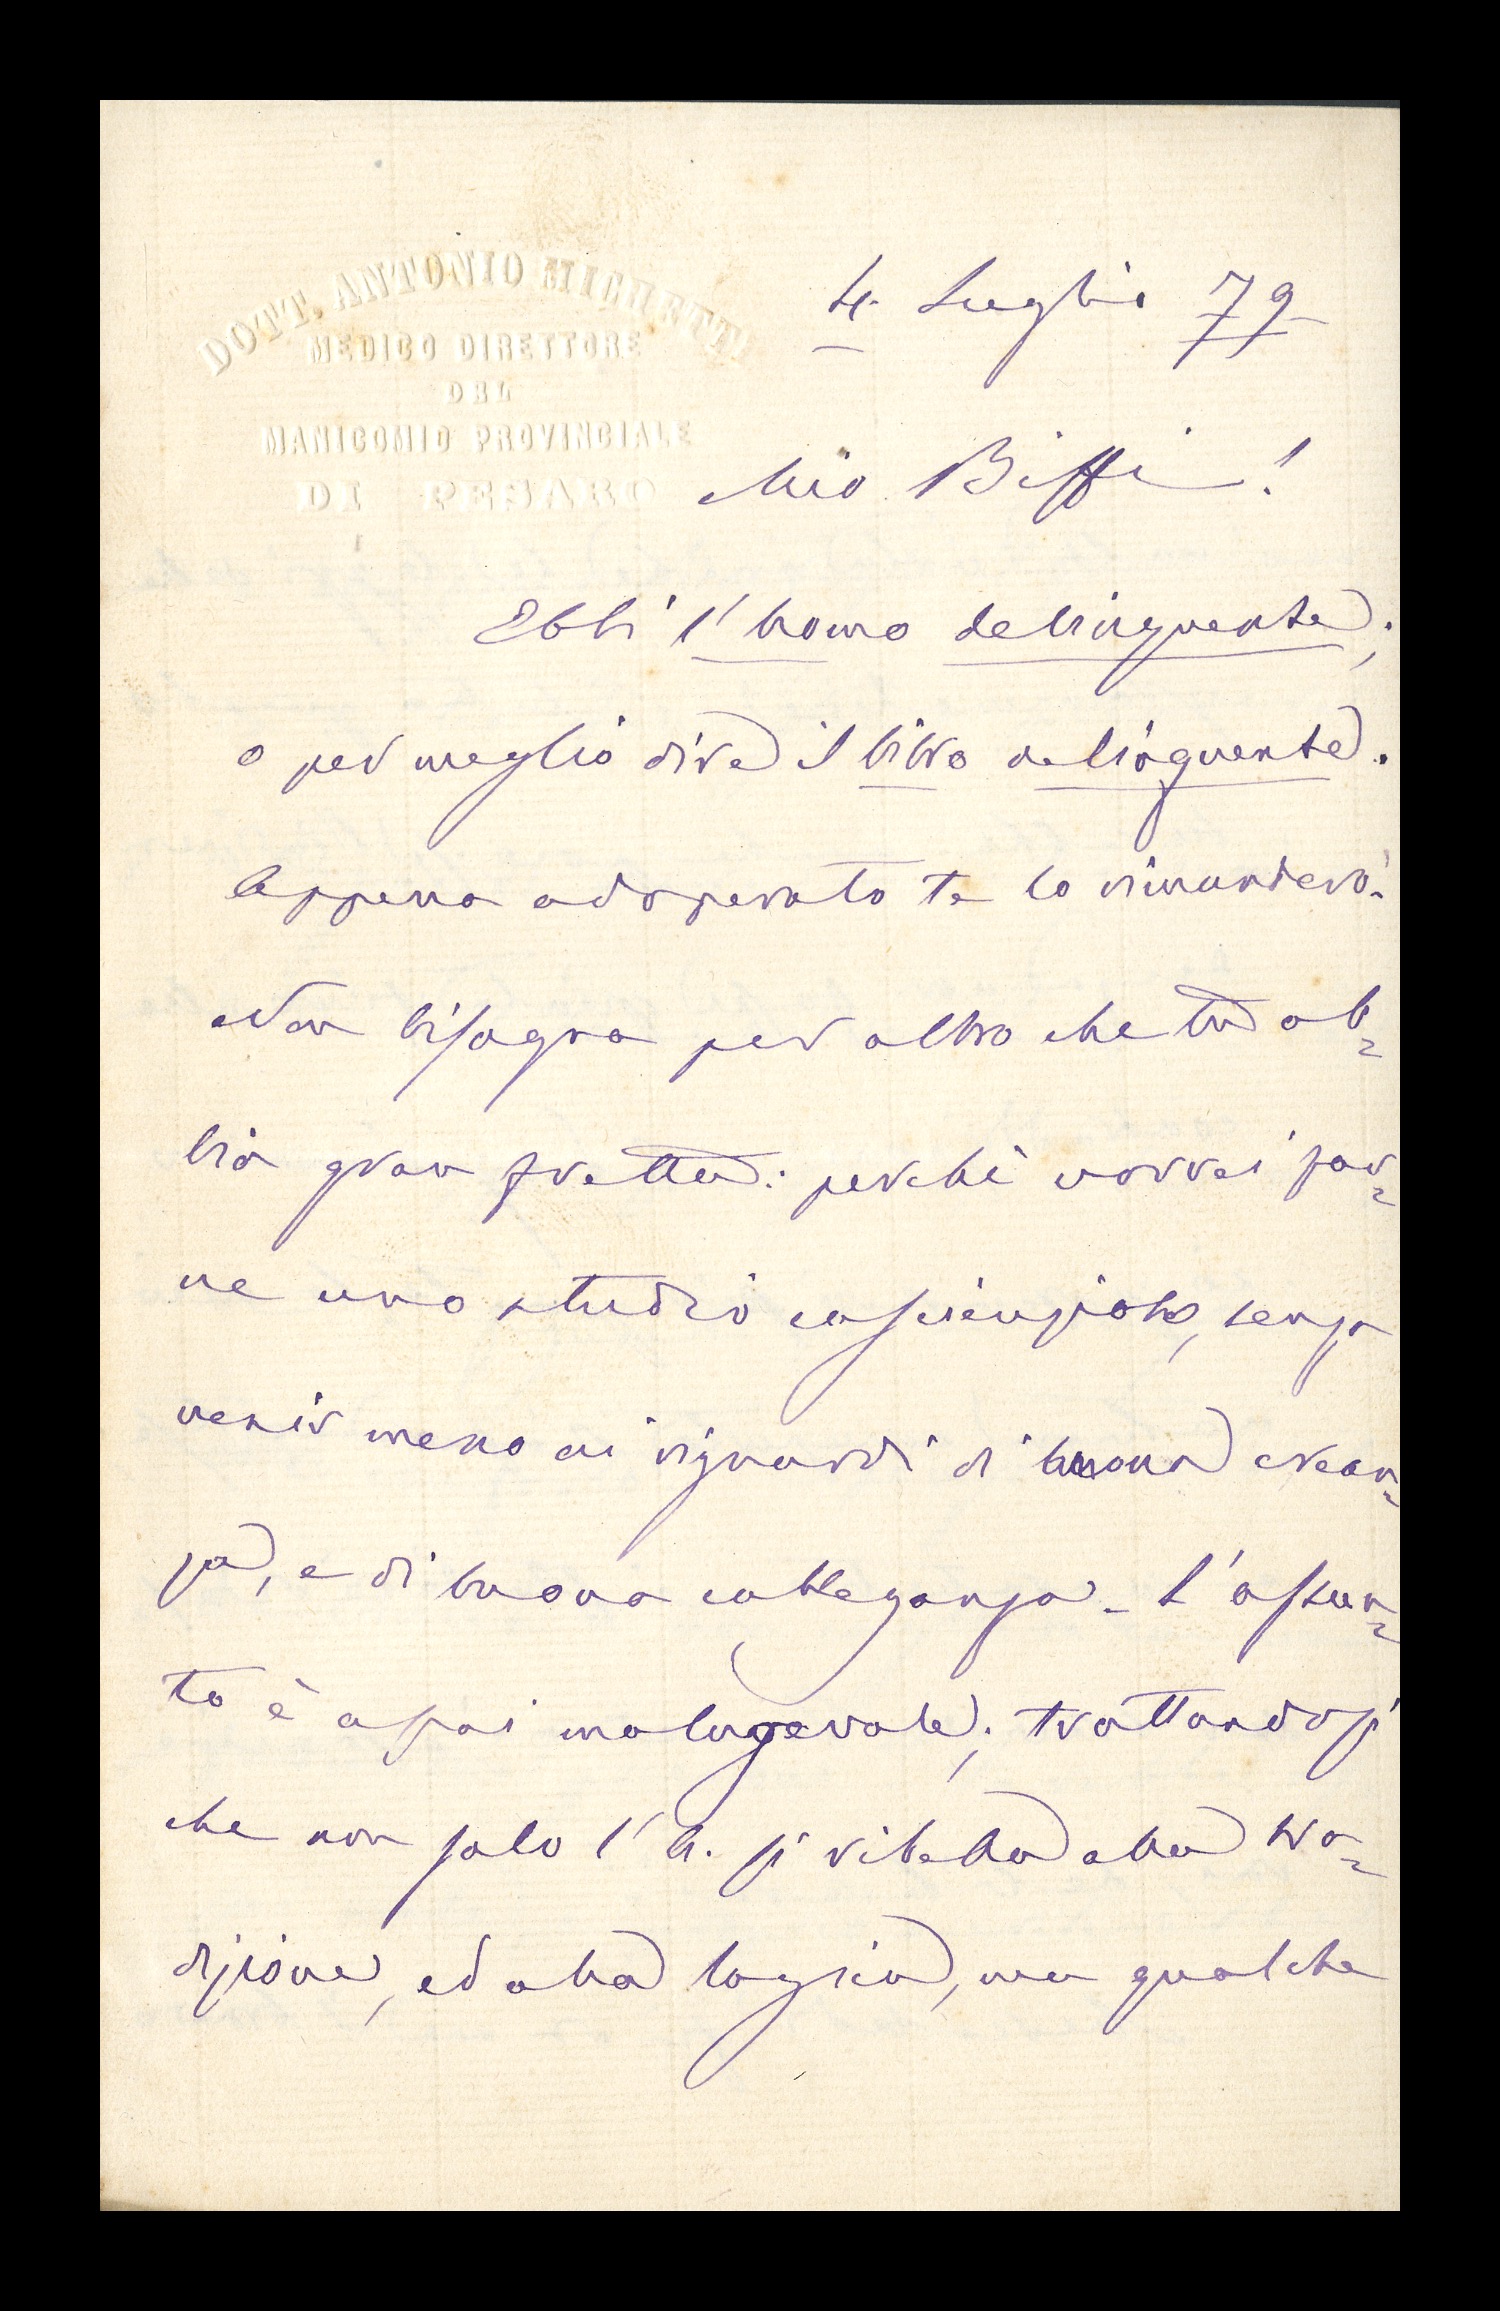 DOTT. ANTONIO MICHETTI
MEDICO DIRETTORE
DEL
MANICOMIO PROVINCIALE
DI PESARO
4. Luglio 79
Mio Biffi!
Ebbi l'homo delinquente;
o per meglio dire il libro delinquente.
Appena adoperato te lo rimanderò.
Non bisogna per altro che tu ab=
bia gran fretta: perchè vorrei far=
ne uno studio coscienzioso, senza
venir meno ai riguardi di buona crean=
za, e di buona colleganza. L'assun=
to è assai malagevole; trattandosi
che non solo l'A. si ribella alla tra=
dizione, ed alla logica, ma qualche